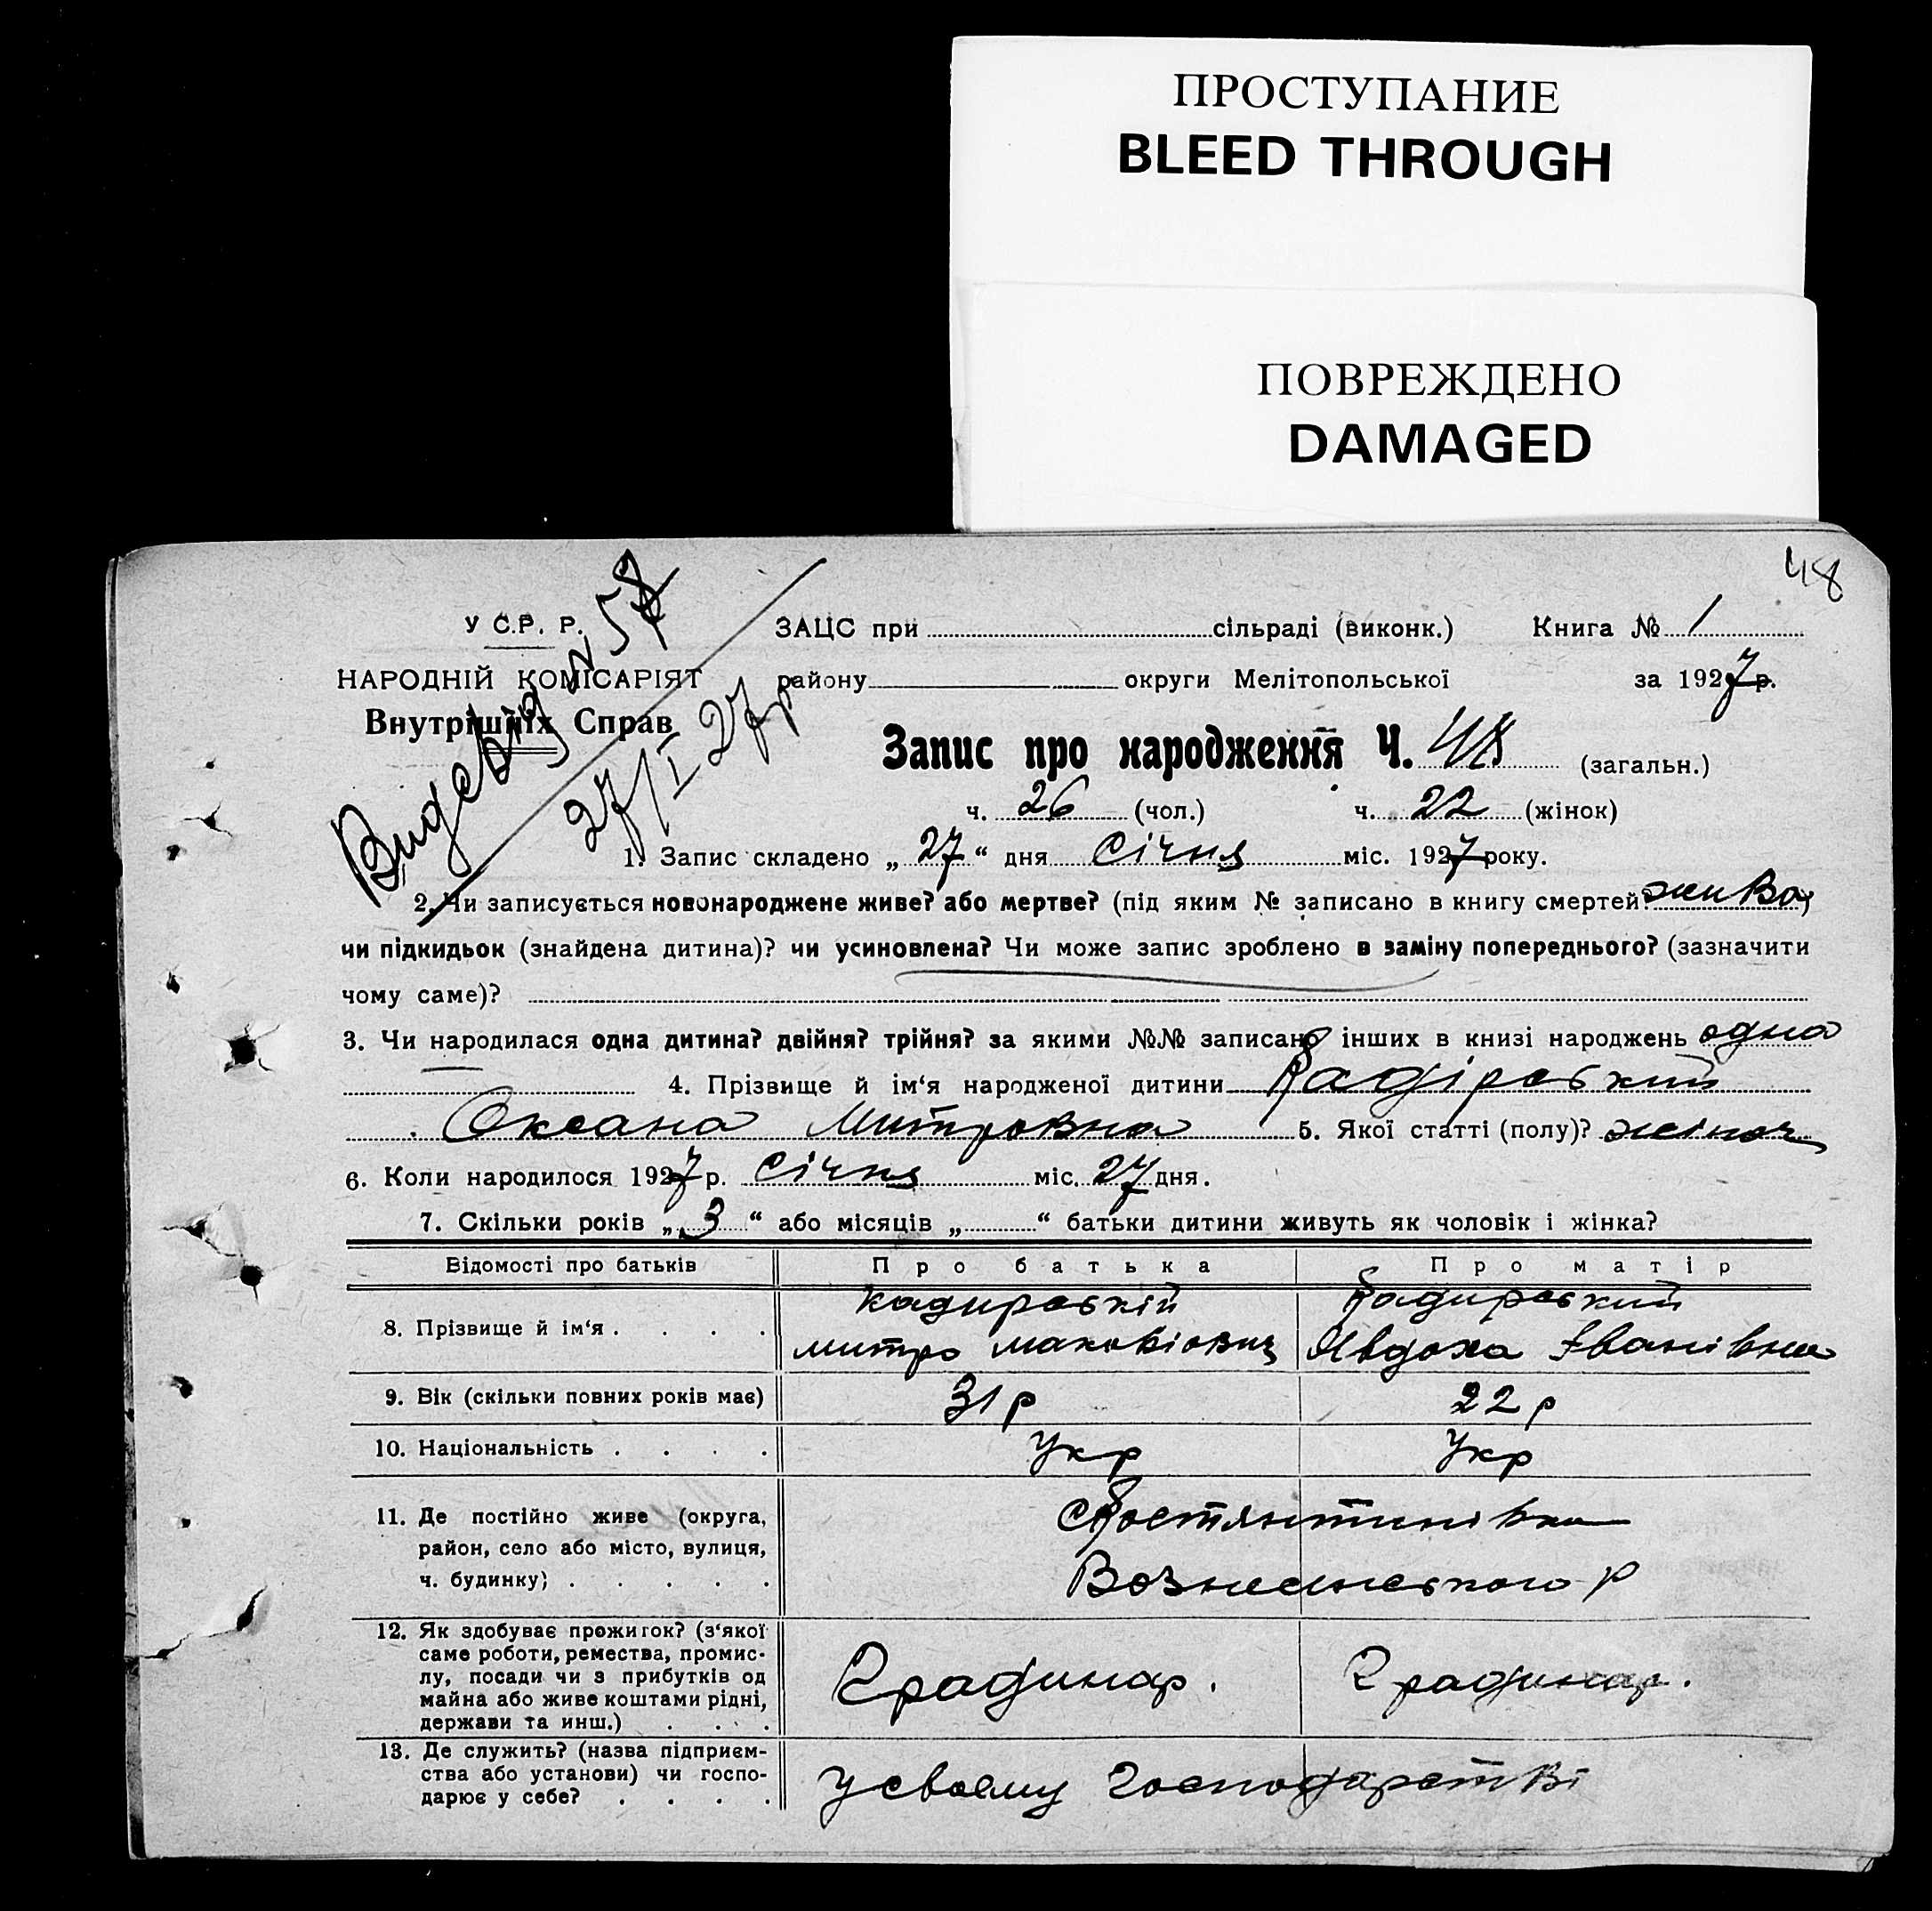 ПРОСТУПАНИЕ
BLEED THROUGH
ПОВРЕЖДЕНО
DAMAGED
48
У С.Р. Р.
НАРОДНІЙ КОМІСАРІЯТ
Внутрішніх Справ
Видг від N 57
27/I 27р
ЗАЦС при сільраді (виконк.) Книга № 1
району округи Мелітопольської за 1927 р.
Запис про народження Ч. 48 (загальн.)
ч. 26 (чол.) ч. 22 (жінок)
1. Запис складено „ 27 “ дня Січня міс. 1927 року.
2. Чи записується новонароджене живе? або мертве? (під яким № записано в книгу смертей? жива)
чи підкидьок (знайдена дитина)? чи усиновлена? Чи може запис зроблено в заміну попереднього? (зазначити
чому саме)?
3. Чи народилася одна дитина? двійня? трійня? за якими №№ записано інших в книзі народжень одна
4. Прізвище й ім‘я народженої дитини Кадірський
Оксана Митровна 5. Якої статті (полу)? жіноч
6. Коли народилося 1927 р. Січня міс. 27 дня.
7. Скільки років „ 3 “ або місяців „ “ батьки дитини живуть як чоловік і жінка?
Відомості про батьків Про батька Про матір
8. Прізвище й ім‘я . . . . Кадирській Кадирский
митро маковіович Явдоха Іванівна
9. Вік (скільки повних років має) 31 р 22 р
10. Національність . . . . Укр Укр
11. Де постійно живе (округа,
район, село або місто, вулиця,
ч. будинку) . . . . .
Вознесенського р
12. Як здобуває прожиток? (з‘якої
саме роботи, ремества, промис-
лу, посади чи з прибутків од
майна або живе коштами рідні,
держави та инш.) . . . .
Градинар. Градинар.
13. Де служить? (назва підприєм-
ства або установи) чи госпо-
дарює у себе? . . . .
У своєму господарстві